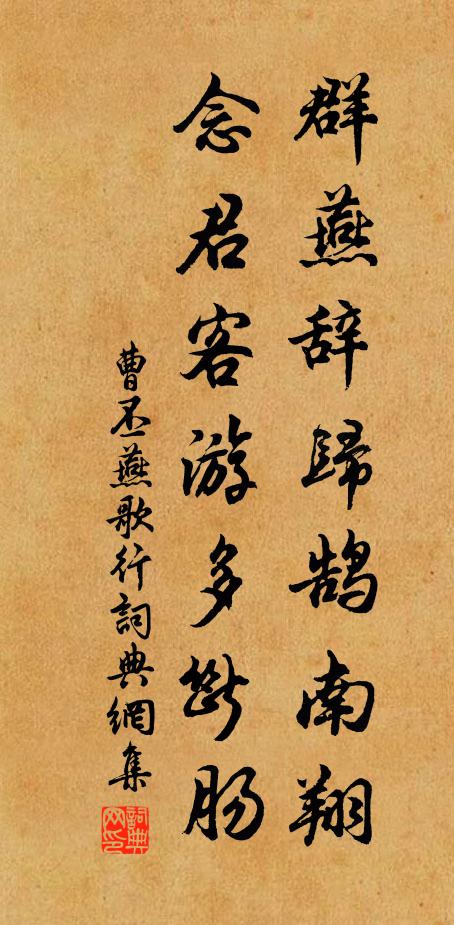 群燕辞歸鹄南翔
念君客游多斷肠
曹丕燕歌行詞典網集
詞典網印